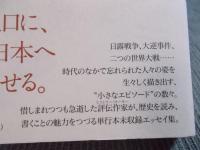 口に、
日本へ
せる。
日露戦争、大逆事件、
二つの世界大戦……
時代のなかで忘れられた人々の姿を
生々しく描き出す、
“小さなエピソード”の数々。
惜しまれつつも急逝した評伝作家が、歴史を読み、
書くことの魅力をつづる単行本未収録エッセイ集。